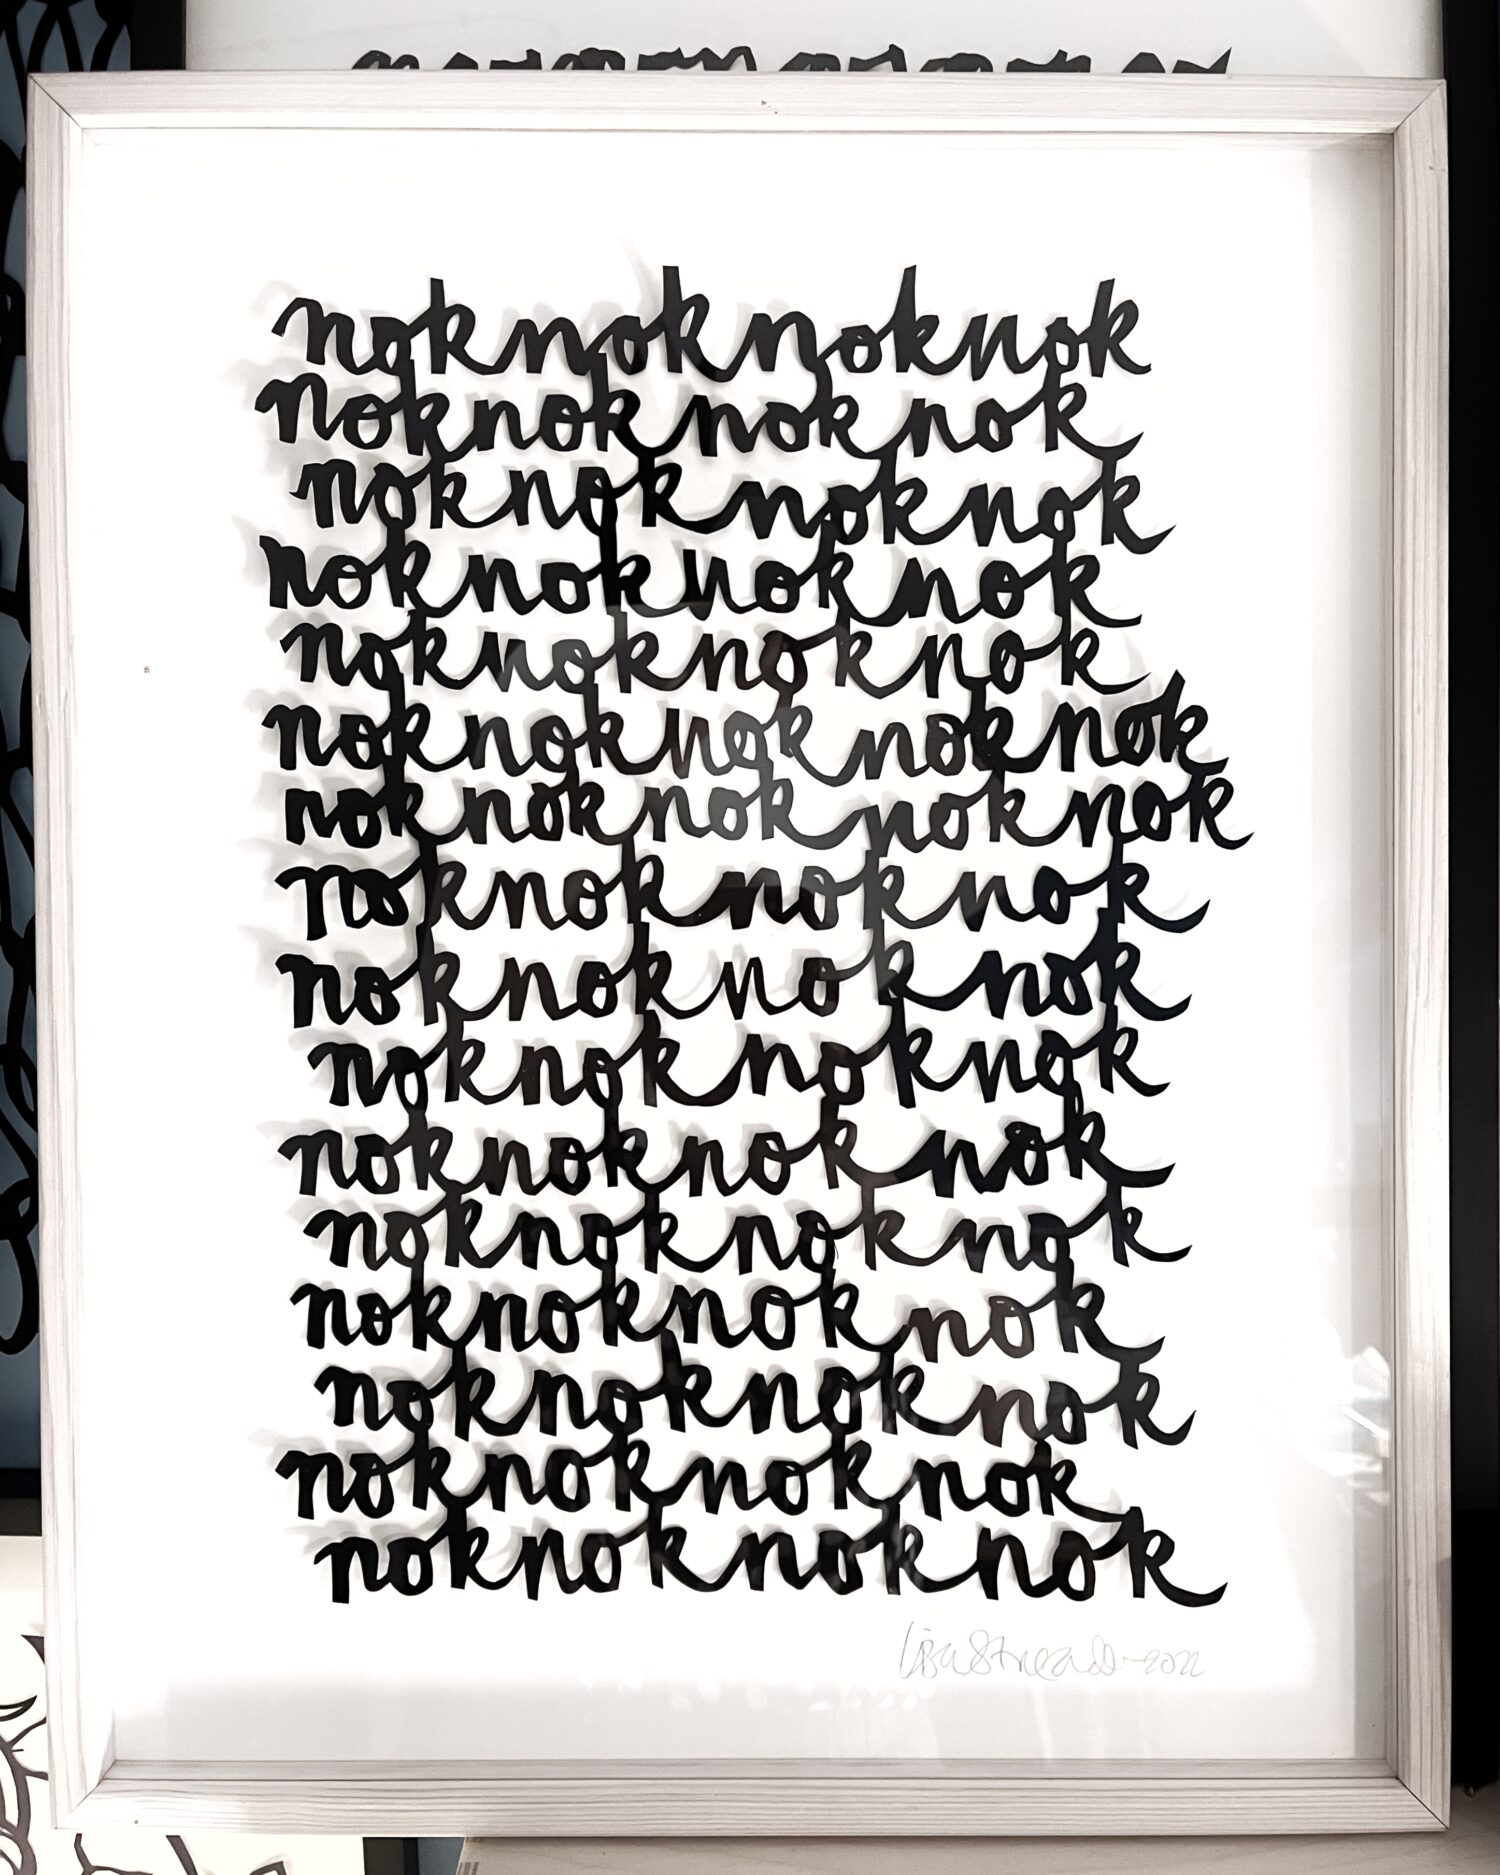 noknoknoknok
noknoknoknok
noknoknoknok
noknoknoknok
noknoknoknok
noknoknoknoknok
noknoknoknoknok
noknoknoknok
noknoknoknok
noknoknoknok
noknoknoknok
noknoknoknok
noknoknoknok
noknoknoknok
noknoknoknok
noknoknoknok
Lisa 2022